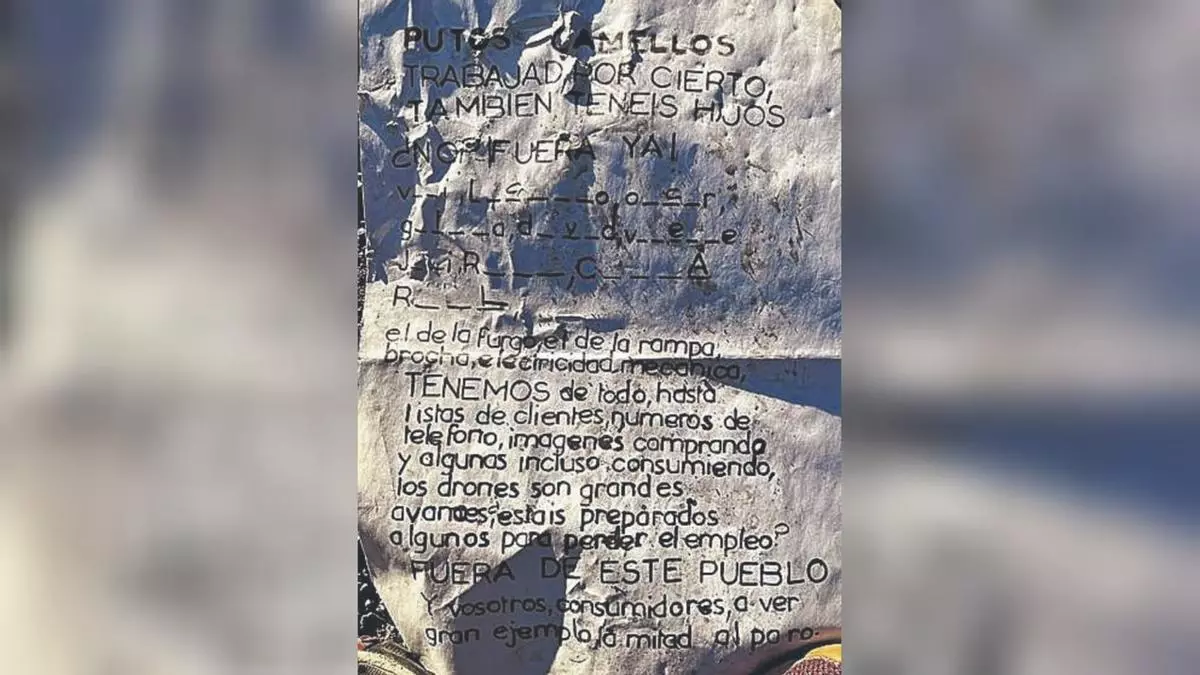 PUTOS CAMELLOS
TRABAJAD, POR CIERTO,
TAMBIEN TENEIS HIJOS
¿NO? FUERA YA!
R___L__
el de la furgo, el de la rampa,
brocha, electricidad, mecanica,
TENEMOS de todo, hasta
listas de clientes, numeros de
telefono, imagenes comprando
y algunas incluso consumiendo,
los drones son grandes
estais preparados
algunos para perder el empleo?
FUERA DE ESTE PUEBLO
Y vosotros, consumidores, a ver
gran ejemplo, la mitad al paro.